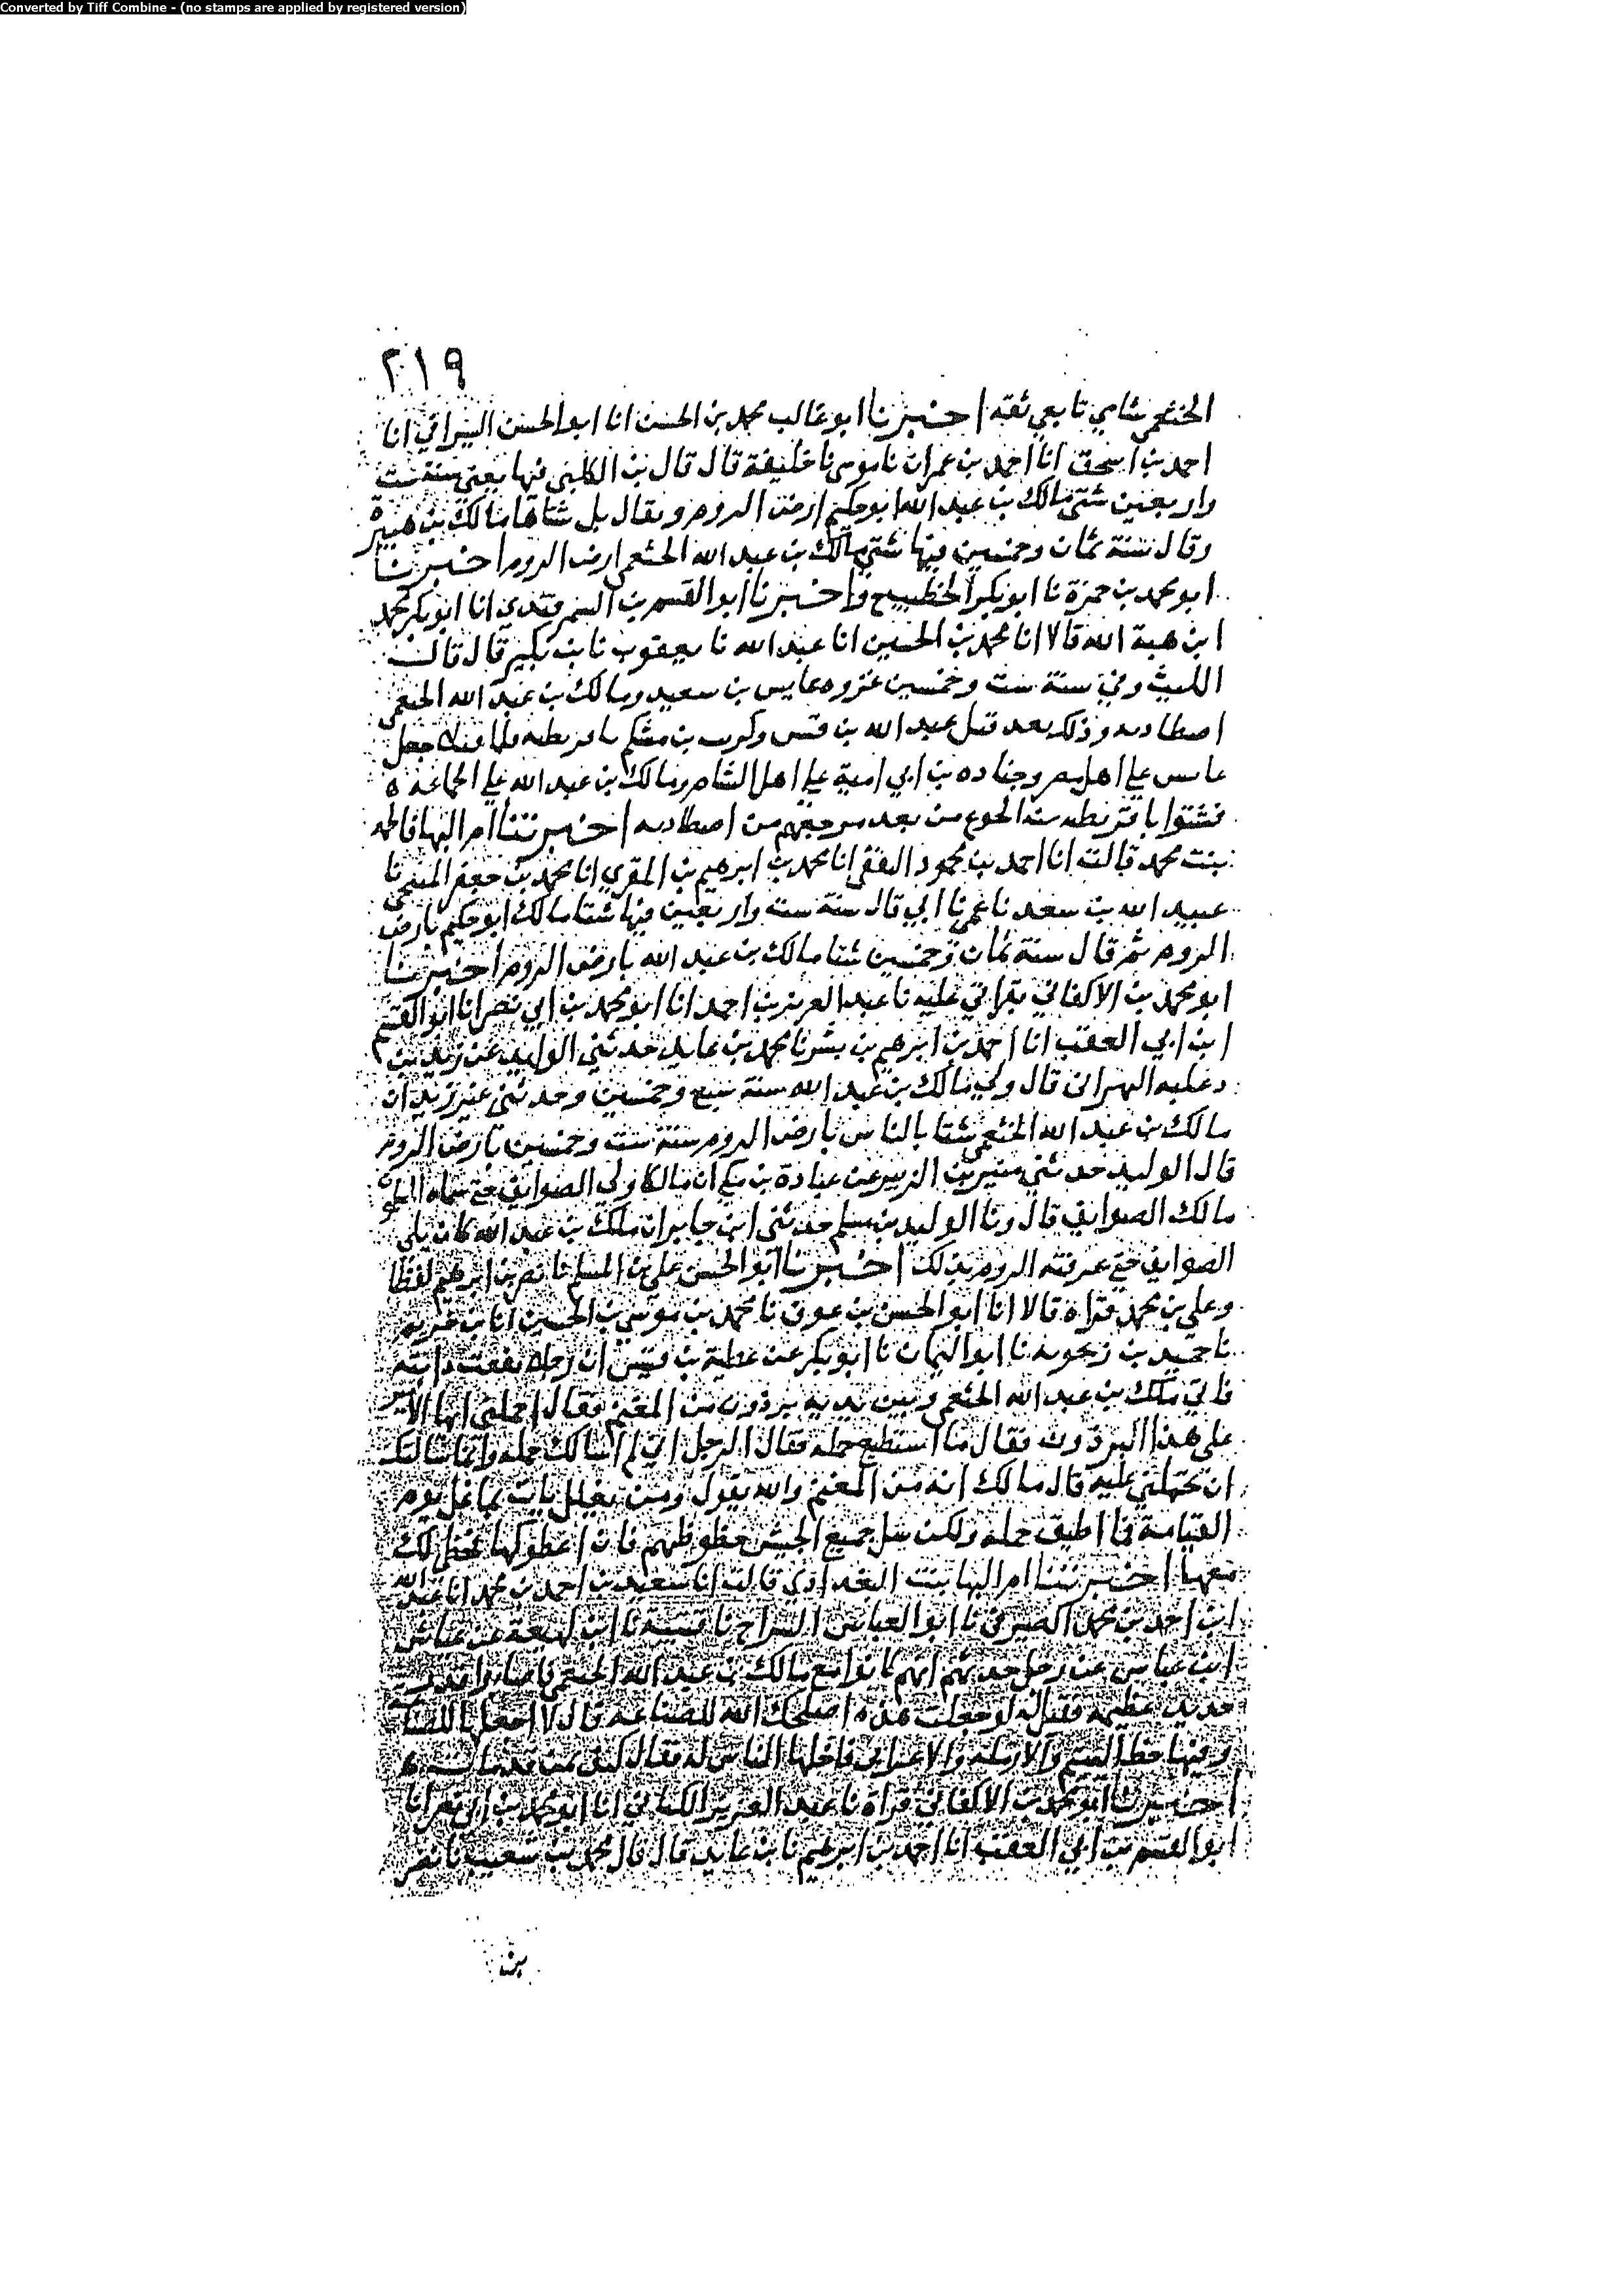 Converted by Tiff Combine - (no stamps are applied by registered version)
٢١٩
الخثعمي شامي تابعي ثقه اخبرنا ابو غالب محمد بن الحسن انا ابو الحسن السيرافي انا
احمد بن اسحق انا احمد بن عمران نا موسى نا خليفة قال قال بن الكلبي فيها يعني سنة ست
واربعين شتى مالك بن عبد الله ابو حكيم ارض الروم ويقال بل شتاها مالك بن هبيرة
وقال سنة ثمان وخمسين فيها شتى مالك بن عبد الله الخثعمي ارض الروم اخبرنا
ابو محمد بن حمزة نا ابو بكر الخطيب ح واخبرنا ابو القسم بن السمرقندي انا ابو بكر محمد
ابن هبة الله قالا انا محمد بن الحسين انا عبد الله نا يعقوب نا بن بكير قال قال
الليث وفي سنة ست وخمسين غزوه عابس بن سعيد ومالك بن عبد الله الخثعمي
اصطادنه وذلك بعد قتل عبد الله بن قيس وكريب بن مشكم باقريطيه فلما قتلا جعل
عابس على اهل مصر وجناده بن ابي امية على اهل الشام ومالك بن عبد الله على الجماعه ه
فشتوا باقريطيه سنة الجوع من بعد مرجعهم من اصطادنه اخبرتنا ام البها فاطمه
بنت محمد قالت انا احمد بن محمود الثقفي انا محمد بن ابرهيم بن المقري انا محمد بن جعفر المنبجي نا
عبيد الله بن سعد نا عمي نا ابي قال سنة ست واربعين فيها شتا مالك ابو حكيم بارض
الروم ثم قال سنة ثمان وخمسين شتا مالك بن عبد الله بارض الروم اخبرنا
ابو محمد بن الاكفاني بقراتي عليه نا عبد العزيز بن احمد انا ابو محمد بن ابي نصر انا ابو القسم
ابن ابي العقب انا احمد بن ابرهيم بن بشر نا محمد بن عايد حدثني الوليد عن زيد بن
دعلبه البهراني قال ولي مالك بن عبد الله سنة سبع وخمسين وحدثني غير زيد ان
مالك بن عبد الله الخثعمي شتا بالناس بارض الروم سنة ست وخمسين بارض الروم
قال الوليد حدثني منير بن الزبير عن عبادة بن نسي ان مالكا ولي الصوايف حتى سماه المسلمون
مالك الصوايف قال ونا الوليد بن مسلم حدثني ابن جابر ان ملك بن عبد الله كان يلي
الصوايف حتى عرفته الروم بذلك اخبرنا ابو الحسن علي بن المسلم نا نصر بن ابرهيم لفظا
وعلي بن محمد قراه قالا انا ابو الحسن بن عوف نا محمد بن موسى بن الحسين انا بن خريم
نا حميد بن زنجويه نا ابو اليمان نا ابو بكر عن عطية بن قيس ان رجلا نفقت دابته
فاتى ملك بن عبد الله الخثعمي وبين يديه برذون من المغنم فقال احملني ايها الامير
على هذا البرذون فقال ما استطيع حمله فقال الرجل اني لم اسالك حمله وانما سالتك
ان تحملني عليه قال مالك انه من المغنم والله يقول ومن يغلل يات بما غل يوم
القيامة فما اطيق حمله ولكن سل جميع الجيش حظوظهم فان اعطوكها فحظي لك
معها اخبرتنا ام البها بنت البغدادي قالت انا سعيد بن احمد بن محمد انا عبد الله
ابن احمد بن محمد الصيرفي نا ابو العباس السراج نا قتيبة نا ابن لهيعة عن عياش
ابن عباس عن رجل حدثهم انهم كانوا مع مالك بن عبد الله الخثعمي فاصابوا قدر
حديد عظيمه فقيل له لو جعلت هذه اصلحك الله للصناعه قال لا اجعلها للصناعه
وفيها حظ اليتيم والارمله والاعرابي فاخلها الناس له فقال كيف بمن قد مات ه
اخبرنا ابو محمد بن الاكفاني قراة نا عبد العزيز الكتاني انا ابو محمد بن ابي نصر انا
ابو القسم بن ابي العقب انا احمد بن ابرهيم نا بن عايد قال قال محمد بن شعيب نا نصر
بن